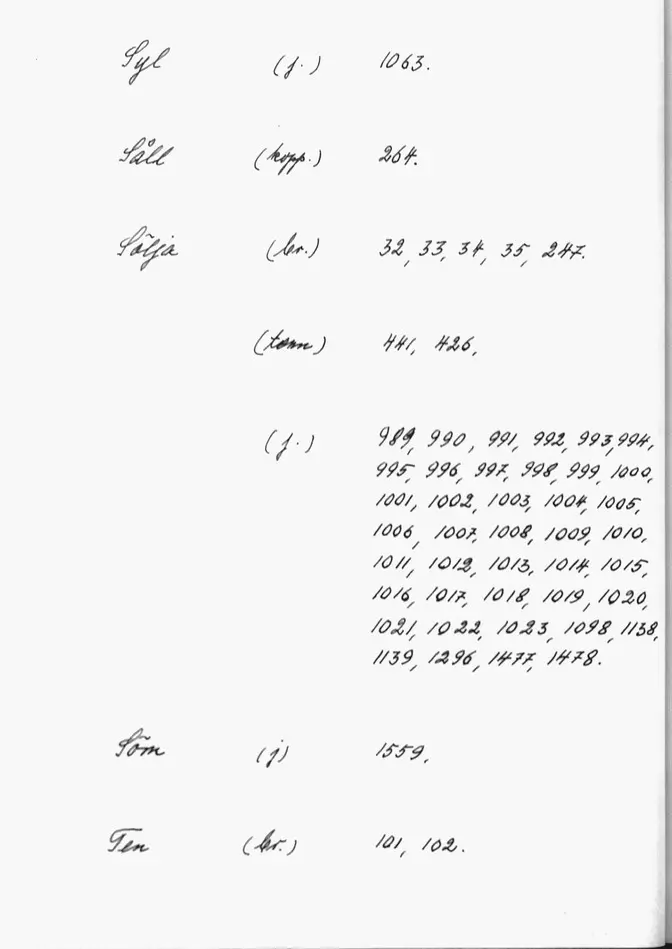 Syl (j.) 1063.
Såll (kopp.) 264.
Sölja (br.) 32, 33, 34, 35, 247.
(tenn) 441, 426,
(j.) 989, 990, 991, 992, 993, 994,
995, 996, 997, 998, 999, 1000,
1001, 1002, 1003, 1004, 1005,
1006, 1007, 1008, 1009, 1010,
1011, 1012, 1013, 1014, 1015,
1016, 1017, 1018, 1019, 1020,
1021, 1022, 1023, 1098, 1138,
1139, 1296, 1477, 1478.
Söm (j) 1559,
Ten (br.) 101, 102.